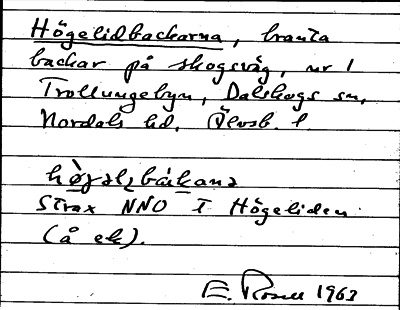 Högelidbackarna, branta
backar på skogsväg, nr 1
Trollungebyn, Dalskogs sn,
Nordals hd, Älvsb. l.
Strax NNO T Högeliden
(å ek).
E. Rosell 1963